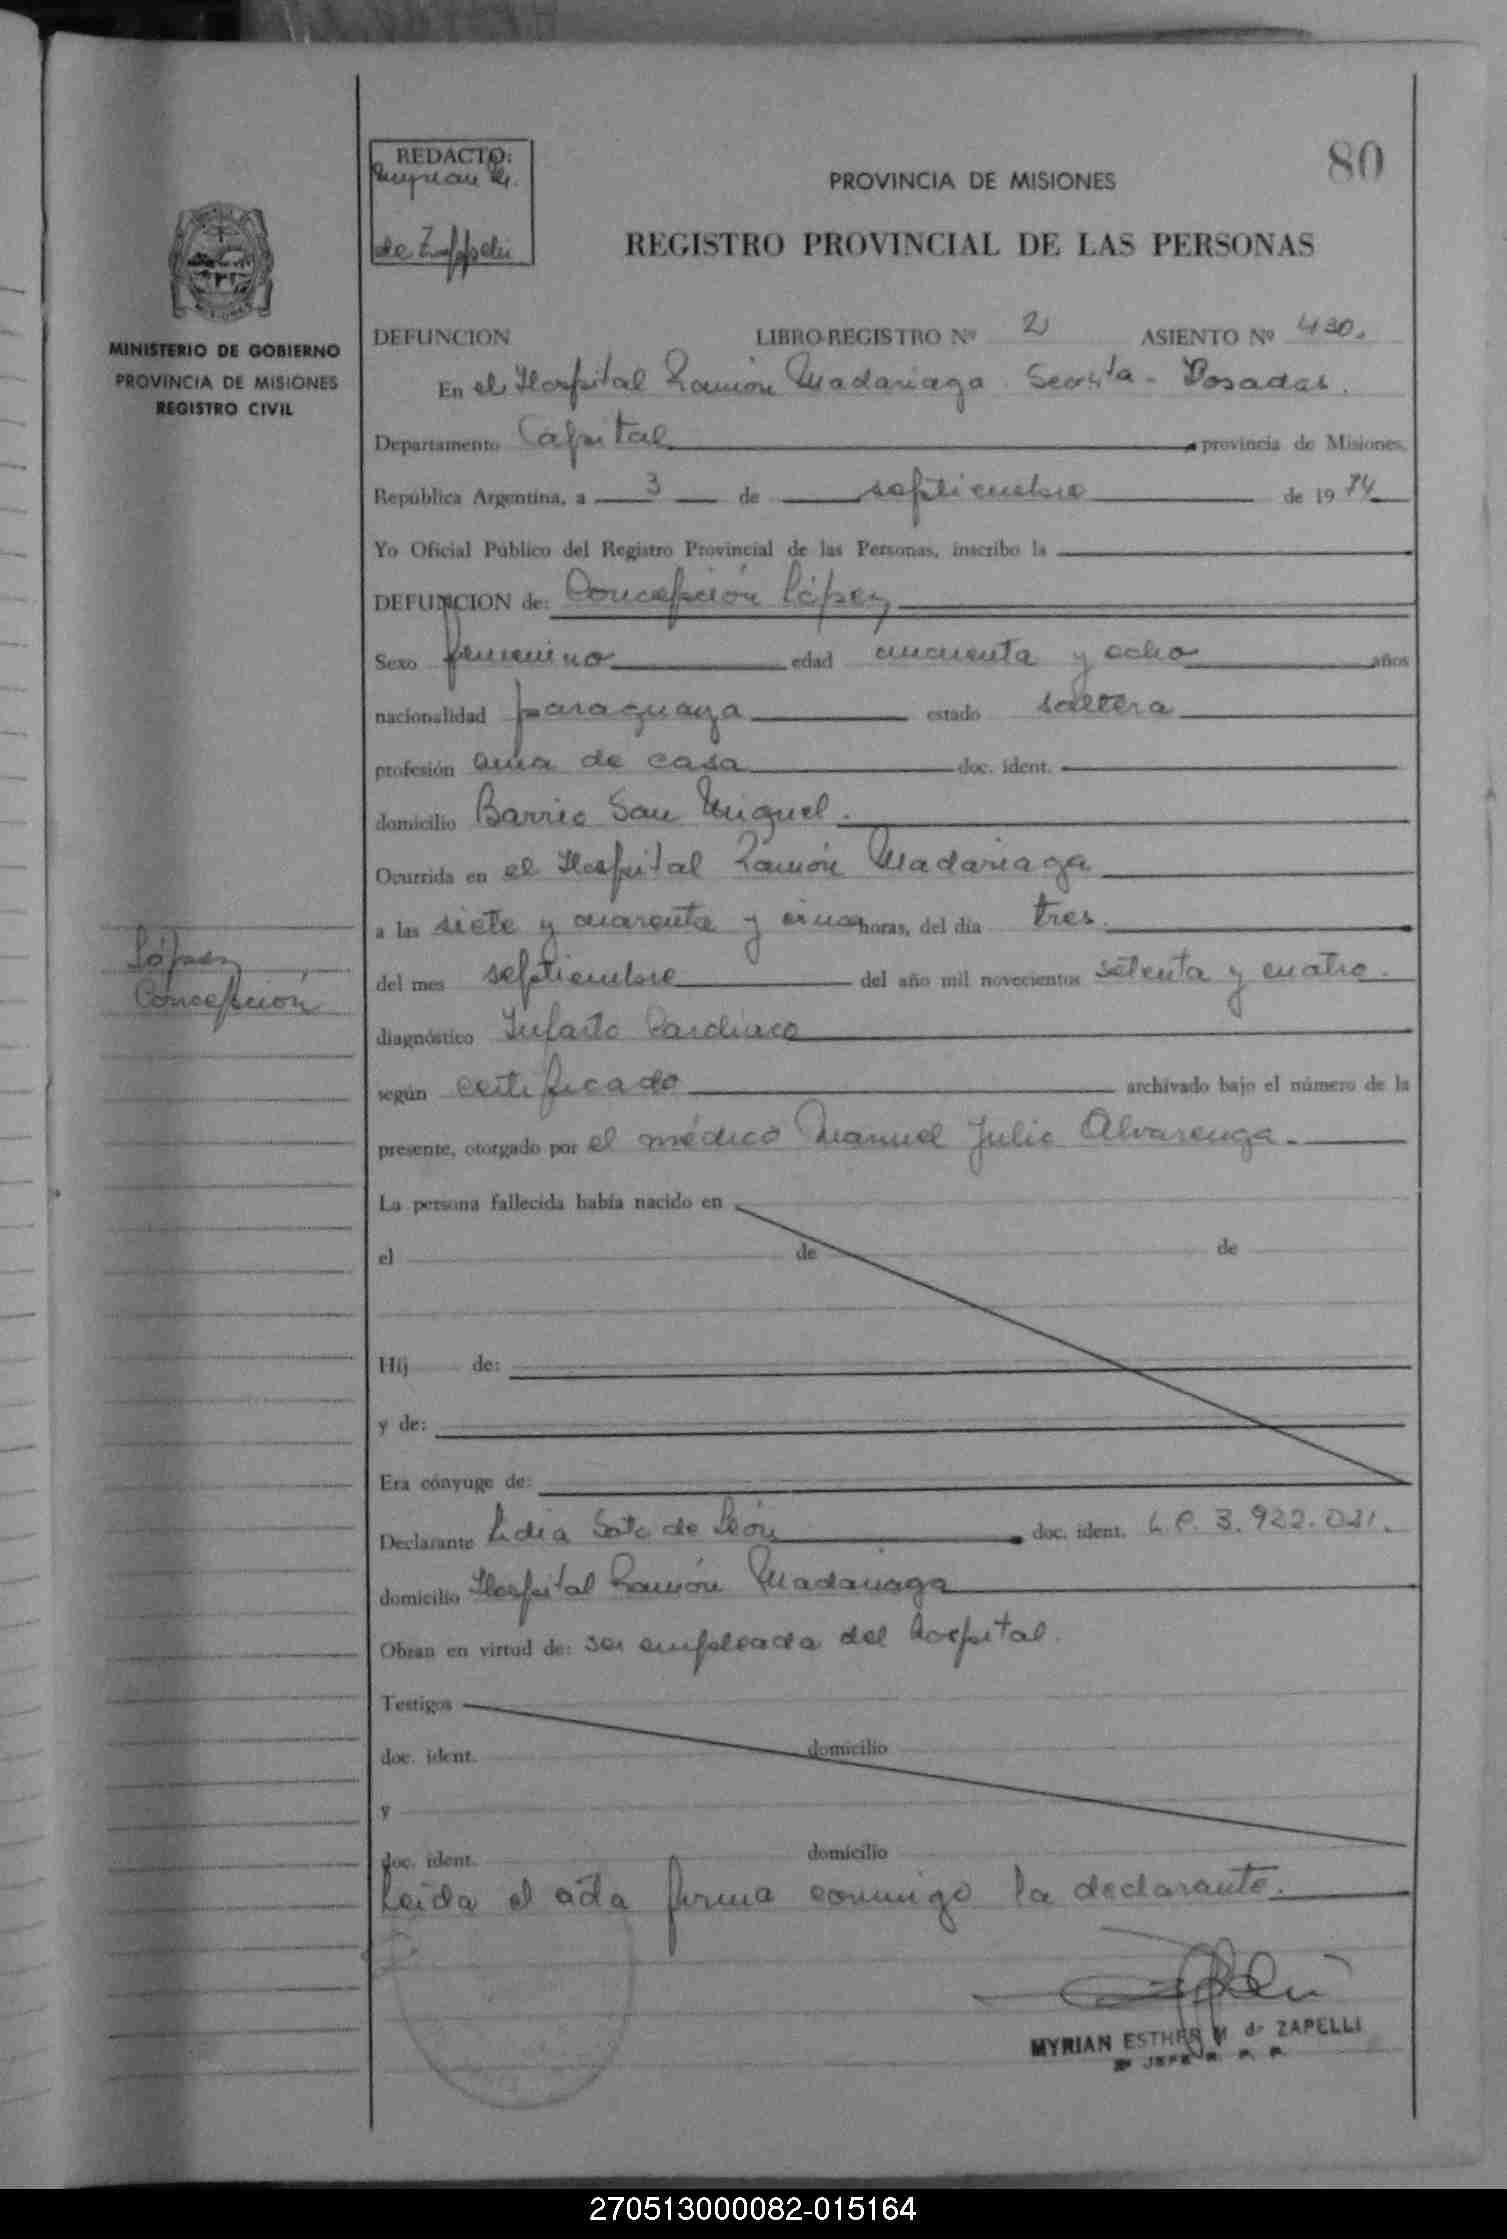 80
REDACTO:
Myrian E.
de Zappelli
PROVINCIA DE MISIONES
REGISTRO PROVINCIAL DE LAS PERSONAS
MINISTERIO DE GOBIERNO
PROVINCIA DE MISIONES
REGISTRO CIVIL
DEFUNCION LIBRO-REGISTRO Nº 2 ASIENTO Nº 430.
En el Hospital Ramón Madariaga Secc. 1ta - Posadas.
Departamento Capital provincia de Misiones,
República Argentina, a 3 de septiembre de 19 74
Yo Oficial Público del Registro Provincial de las Personas, inscribo la
DEFUNCION de: Concepción López
Sexo femenino edad cincuenta y ocho años
nacionalidad paraguaya estado soltera
profesión ama de casa doc. ident.
domicilio Barrio San Miguel.
Ocurrida en el Hospital Ramón Madariaga
a las siete y cuarenta y cinco horas, del día tres.
del mes septiembre del año mil novecientos setenta y cuatro.
diagnóstico Infarto Cardiaco
según certificado archivado bajo el número de la
presente, otorgado por el médico Manuel Julio Alvarenga.
López
Concepción
La persona fallecida había nacido en
el de de
Hij de:
y de:
Era cónyuge de:
Declarante Lidia Soto de León doc. ident. L.C. 3.922.021.
domicilio Hospital Ramón Madariaga
Obran en virtud de: ser empleada del hospital.
Testigos
doc. ident. domicilio
y
doc. ident. domicilio
Leída el acta firma conmigo la declarante.
MYRIAN ESTHER M. de ZAPELLI
JEFE R. P. P.
270513000082-015164